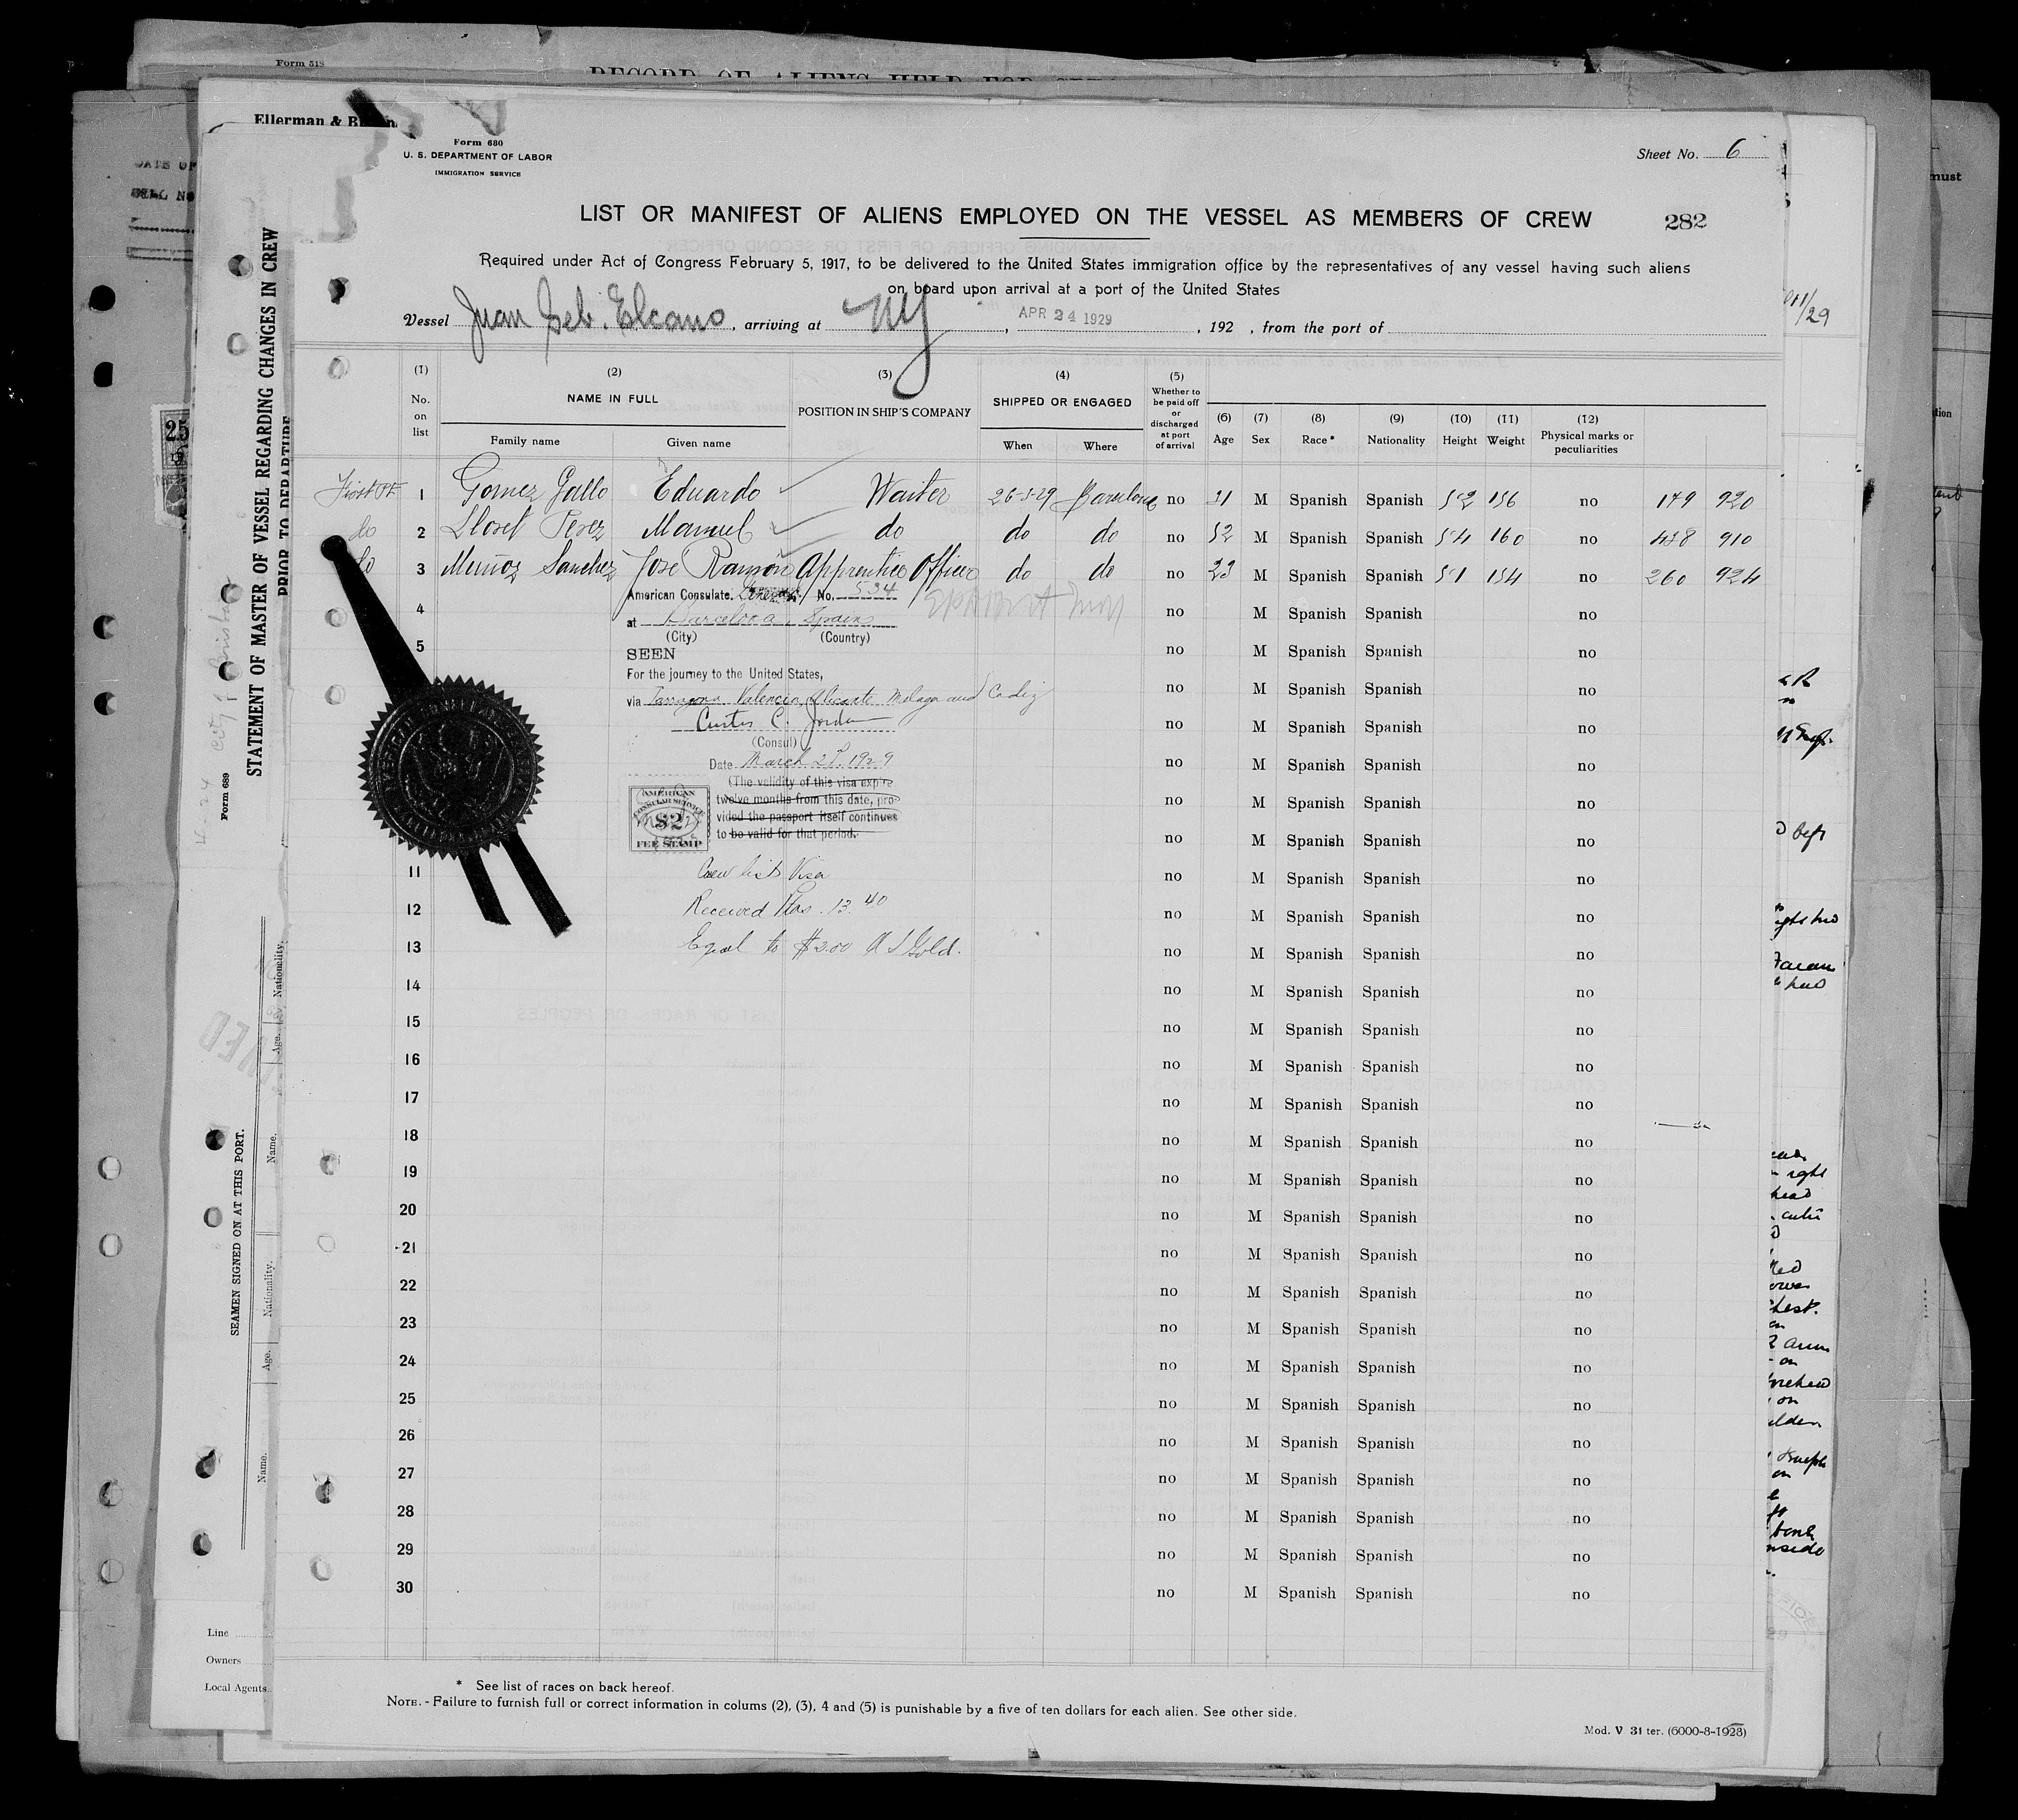 Form 518
RECORD OF ALIENS HELD FOR
Ellerman & B
Form 680
U. S. DEPARTMENT OF LABOR
IMMIGRATION SERVICE
Sheet No. 6
LIST OR MANIFEST OF ALIENS EMPLOYED ON THE VESSEL AS MEMBERS OF CREW
282
Required under Act of Congress February 5, 1917, to be delivered to the United States immigration office by the representatives of any vessel having such aliens
on board upon arrival at a port of the United States
Vessel Juan Seb. Elcano, arriving at NY, APR 24 1929, 192 , from the port of
(1) (2) (3) (4) (5)
No. on list NAME IN FULL POSITION IN SHIP'S COMPANY SHIPPED OR ENGAGED Whether to be paid off or discharged at port of arrival
(6) (7) (8) (9) (10) (11) (12)
Age Sex Race* Nationality Height Weight Physical marks or peculiarities
Family name Given name When Where
First PE 1 Gomez Gallo Eduardo Waiter 26-3-29 Barcelona no 31 M Spanish Spanish 5'2 156 no 179 920
do 2 Lloret Perez Manuel do do do no 52 M Spanish Spanish 5'4 160 no 438 910
do 3 Muñoz Sanchez Jose Ramon Apprentice Officer do do no 23 M Spanish Spanish 5'1 154 no 260 924
American Consulate General No. 534
4 no M Spanish Spanish no
at Barcelona, Spain
(City) (Country)
5 no M Spanish Spanish no
SEEN
For the journey to the United States,
no M Spanish Spanish no
via Tarragona Valencia, Alicante Malaga and Cadiz
Curtis C. Jordan
no M Spanish Spanish no
(Consul)
Date March 27, 1929
no M Spanish Spanish no
(The validity of this visa expire
twelve months from this date, pro-
no M Spanish Spanish no
vided the passport itself continues
to be valid for that period.
no M Spanish Spanish no
AMERICAN
CONSULAR SERVICE
$2
FEE STAMP
11 no M Spanish Spanish no
Crew list Visa
12 no M Spanish Spanish no
Received Ptas. 13.40
13 no M Spanish Spanish no
Equal to $2.00 U S Gold.
14 no M Spanish Spanish no
15 no M Spanish Spanish no
16 no M Spanish Spanish no
17 no M Spanish Spanish no
18 no M Spanish Spanish no
19 no M Spanish Spanish no
20 no M Spanish Spanish no
21 no M Spanish Spanish no
22 no M Spanish Spanish no
23 no M Spanish Spanish no
24 no M Spanish Spanish no
25 no M Spanish Spanish no
26 no M Spanish Spanish no
27 no M Spanish Spanish no
28 no M Spanish Spanish no
29 no M Spanish Spanish no
30 no M Spanish Spanish no
* See list of races on back hereof.
NOTE. - Failure to furnish full or correct information in colums (2), (3), 4 and (5) is punishable by a five of ten dollars for each alien. See other side.
Mod. V 31 ter. (6000-8-1928)
STATEMENT OF MASTER OF VESSEL REGARDING CHANGES IN CREW
PRIOR TO DEPARTURE
Form 689
SEAMEN SIGNED ON AT THIS PORT.
Name. Age. Nationality. Name. Age. Nationality.
Line
Owners
Local Agents